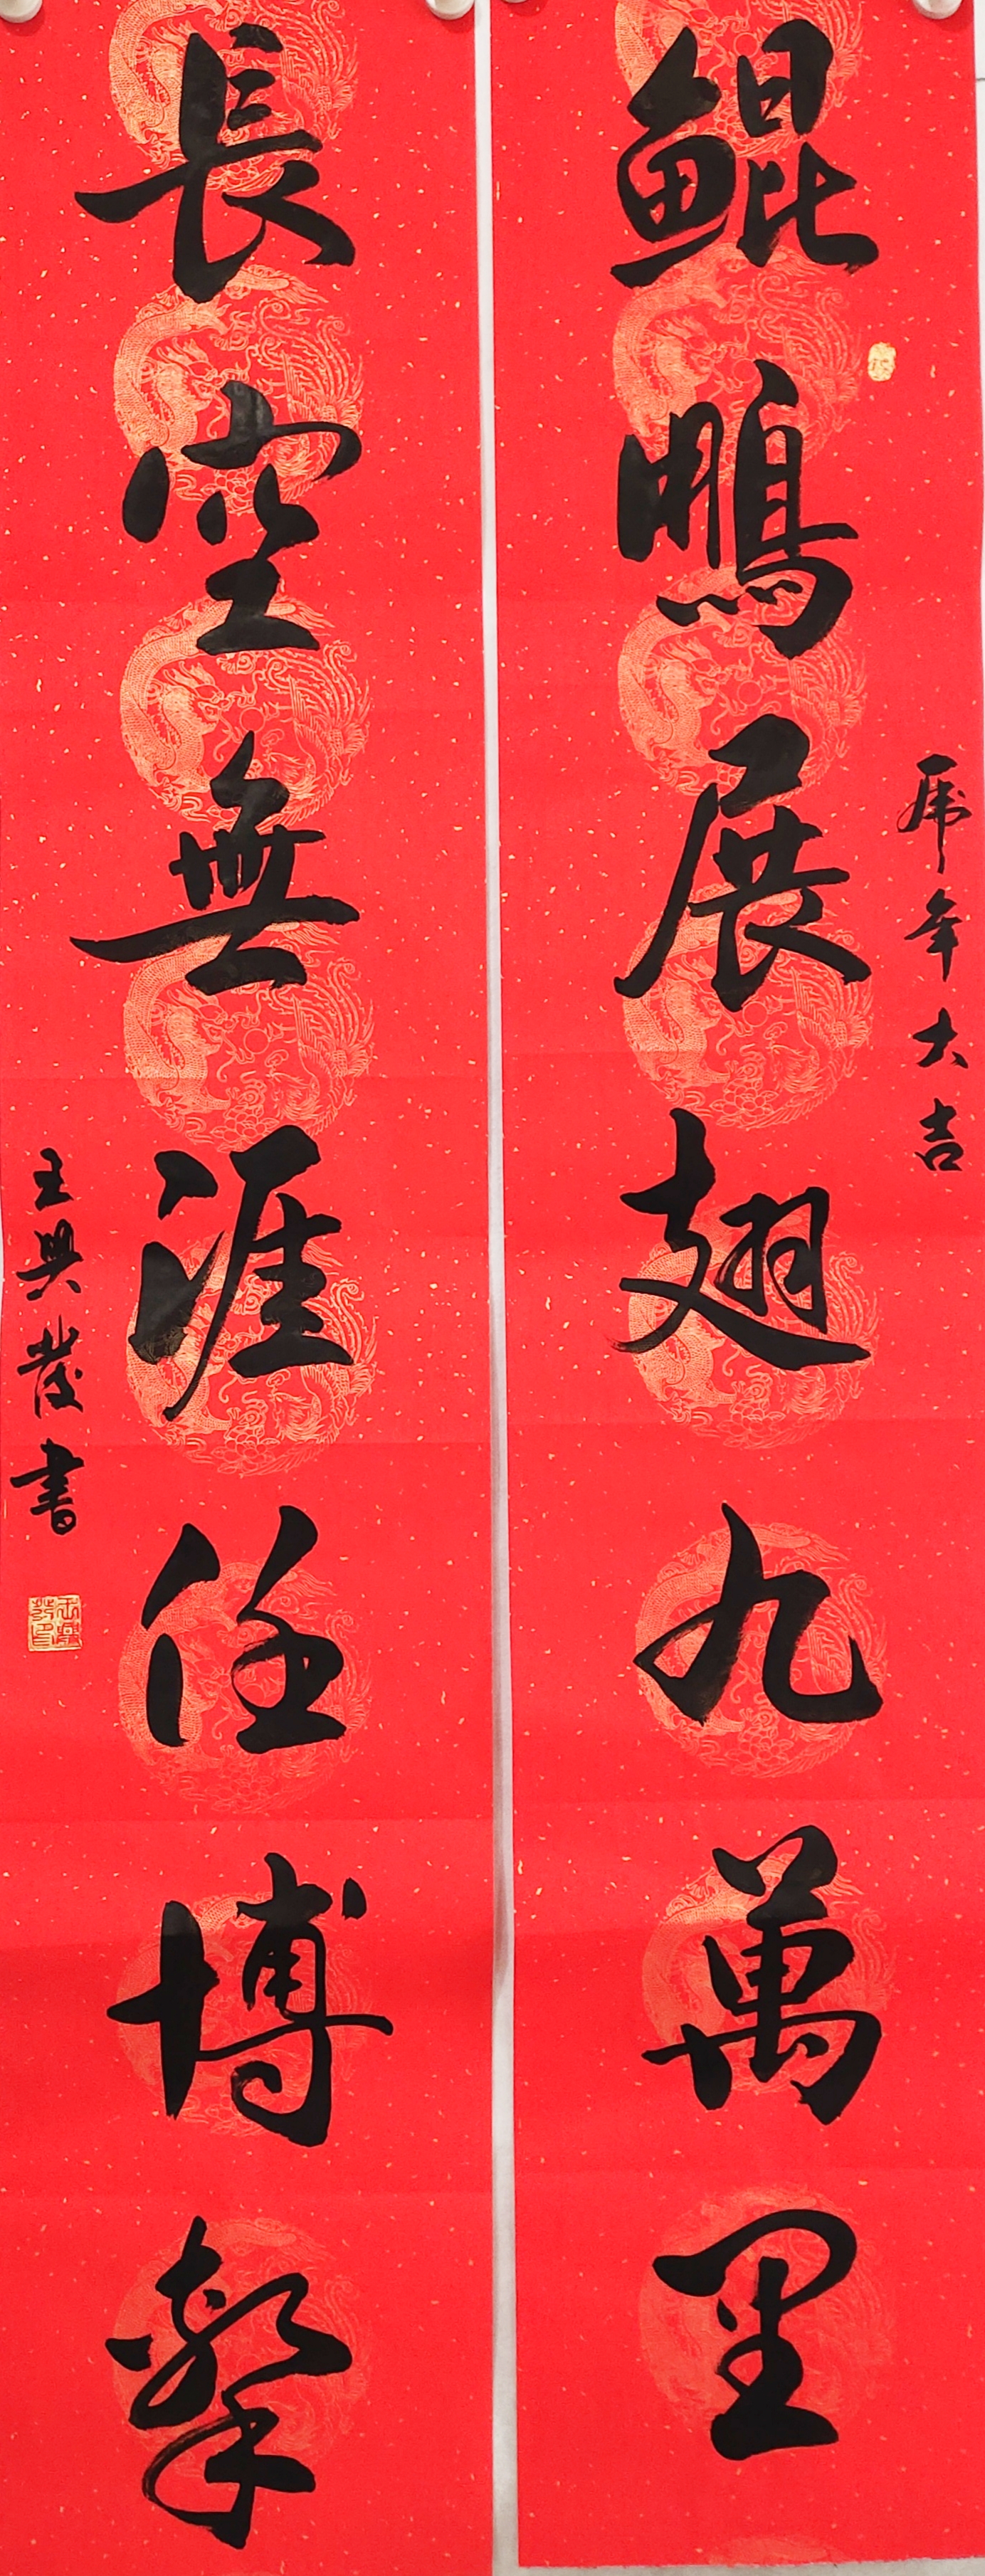 鲲鵬展翅九萬里
虎年大吉
長空無涯任博擊
王興發書